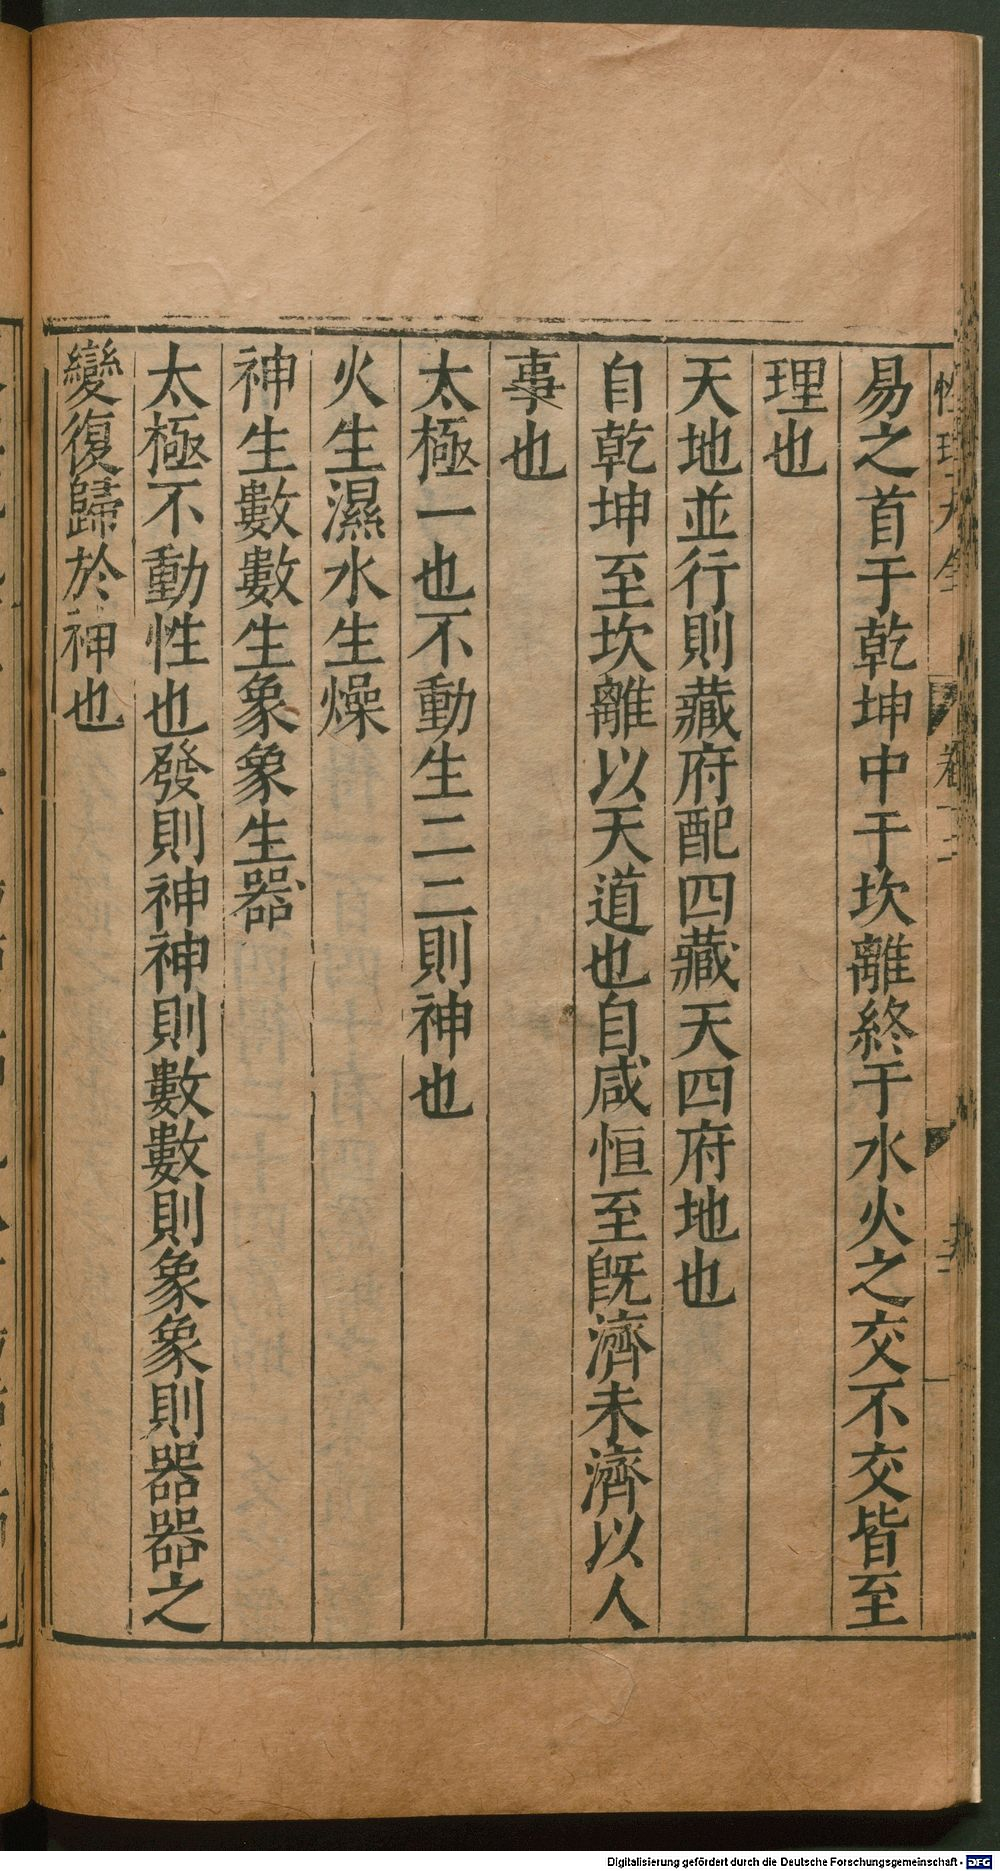 易之首于乾坤中于坎離終于水火之交不交皆至
理也
天地並行則藏府配四藏天四府地也
自乾坤至坎離以天道也自咸恒至既濟未濟以人
事也
太極一也不動生二二則神也
火生濕水生燥
神生數數生象象生器
太極不動性也發則神神則數數則象象則器器之
變復歸於神也
性理大全
卷十二
Digitalisierung gefördert durch die Deutsche Forschungsgemeinschaft - DFG